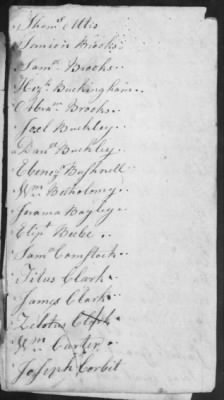 Thoms Otis
Simion Brooks
Saml. Brooks
Hezh. Buckingham
Abram Brooks
Joel Buckley
Danl. Buckley
Ebenezr Bushnell
Wm. Batholomy
Jerama Bagley
Elipt Beebe
Saml Comstock
Titus Clark
James Clark
Zelotus Clark
Wm Carter
Joseph Corbit